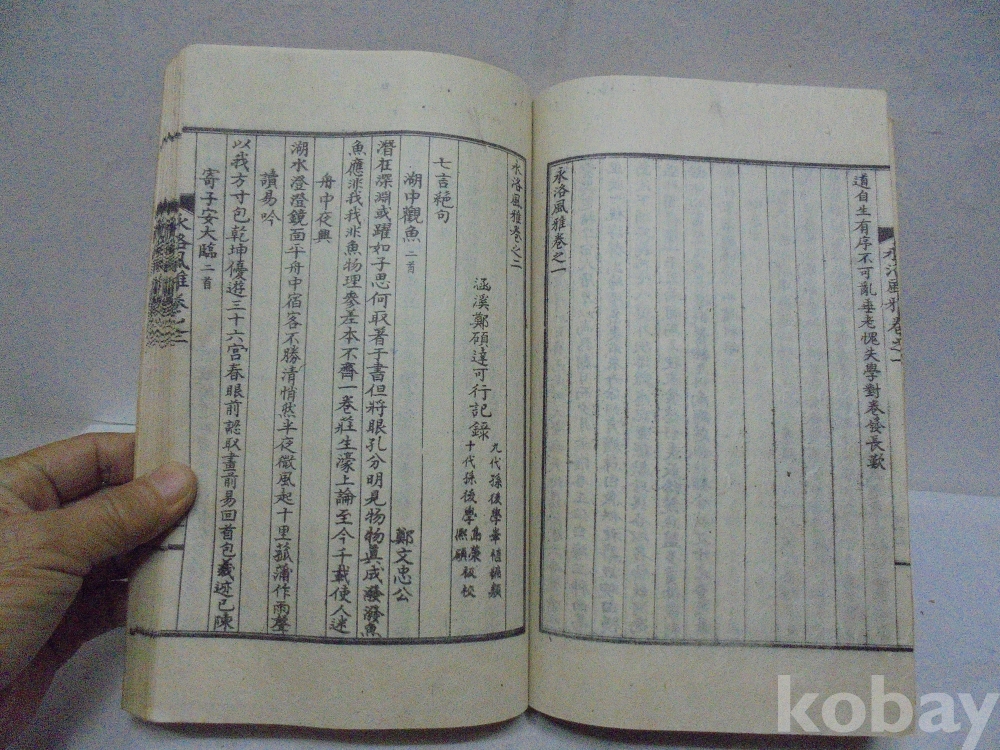 道自生有序不可亂垂老愧失學對卷發長歎
永洛風雅卷之一
永洛風雅卷之一
永洛風雅卷之二
涵溪鄭碩達可行記錄
九代孫後學
十代孫後學
七言絕句
湖中觀魚 二首
鄭文忠公
潛在深淵或躍如子思何取著于書但將眼孔分明見物物眞成潑潑魚
魚應非我我非魚物理參差本不齊一卷莊生濠上論至今千載使人迷
舟中夜興
湖水澄澄鏡面平舟中宿客不勝清悄然半夜微風起十里菰蒲作雨聲
讀易吟
以我方寸包乾坤優遊三十六宮春眼前認取畫前易回首包羲迹已陳
寄子安大臨 二首
永洛風雅卷之二
kobay